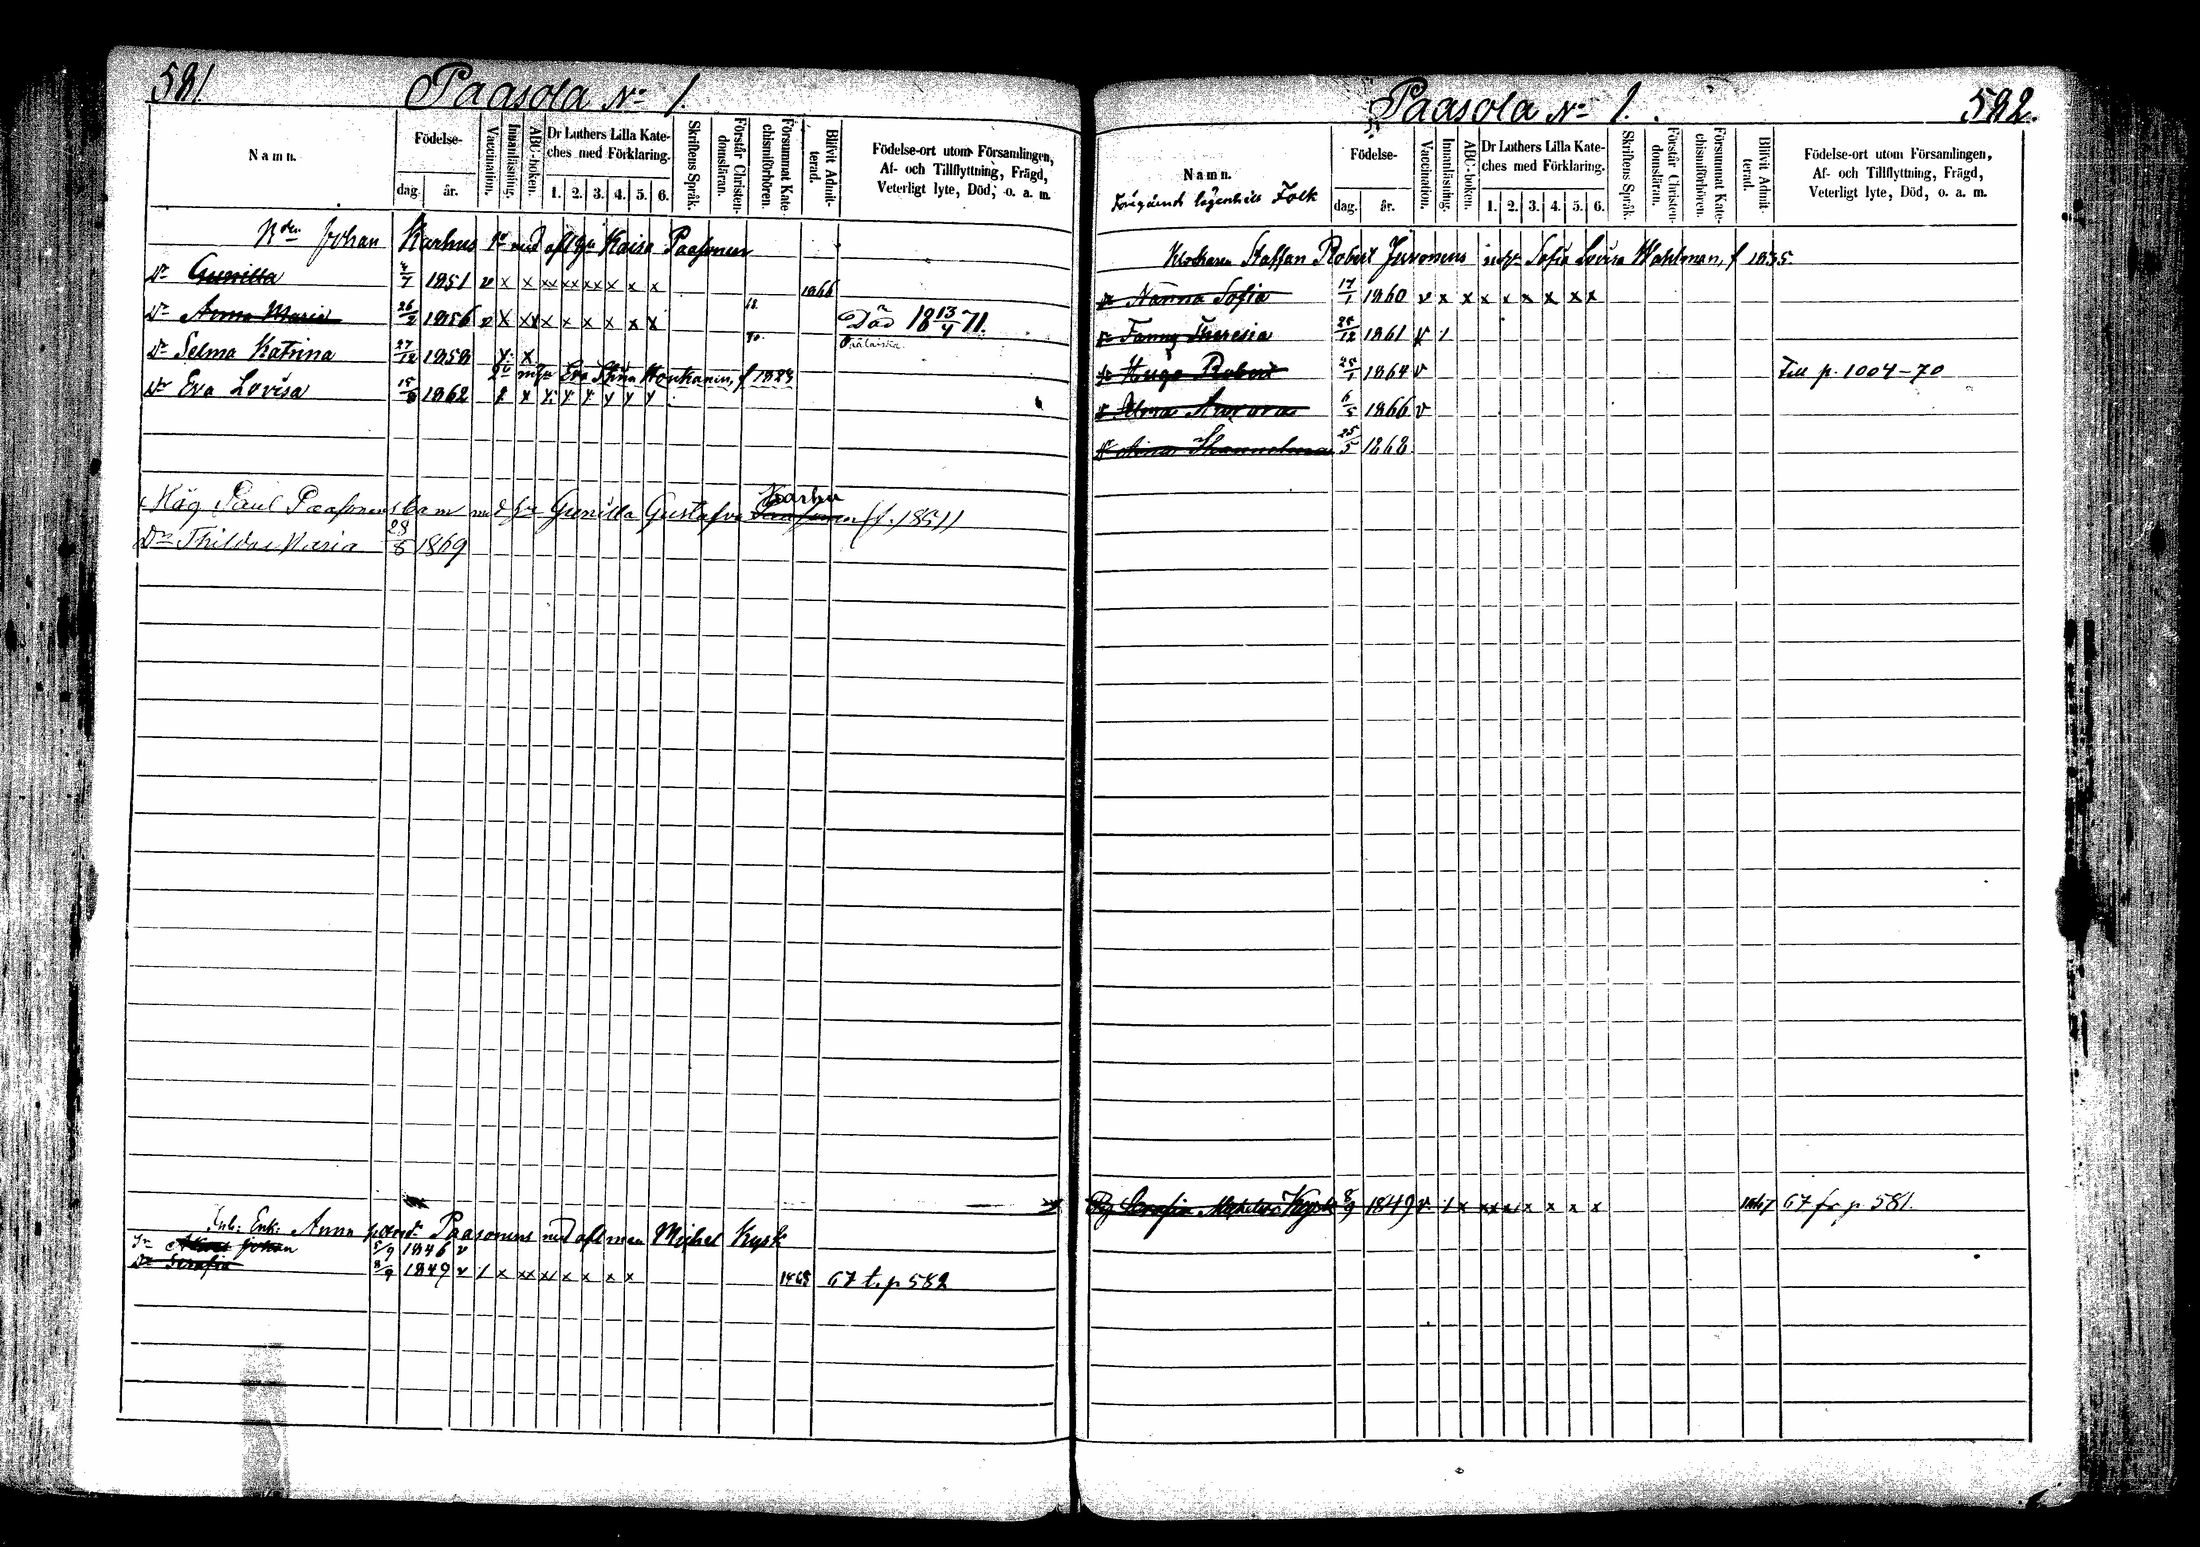 581.
Paasola No 1.
Namn.
Födelse-
dag.
år.
Vaccination.
Innanläsning.
ABC-boken.
Dr Luthers Lilla Kate-
ches med Förklaring.
1. 2. 3. 4. 5. 6.
Skriftens Språk.
Förstår Christen-
domsläran.
Försummat Kate
chismiförhören.
Blifvit Admit-
terad.
Födelse-ort utom Församlingen,
Af- och Tillflyttning, Frägd,
Veterligt lyte, Död, o. a. m.
Johan Karhus 1o med afl hu Kaisa Paasonen
Dr Gunilla 4/7 1851 v x x xx xx xx x x x 1866
Dr Anna Maria 26/2 1856 v x xx x x x x x 18. Död 18 13/4 71.
Dr Selma Katrina 27/12 1858 x x 70.
2o m hu Eva Stina Honkanen, f 1823
Dr Eva Lovisa 15/8 1862 x x x x x x x x
Måg Paul Paasonens barn med hu Gunilla Gustafva Karhu f. 1851
Dr Thilda Maria 28/8 1869
Inh: Enk: Anna Paasonens med afl man Michel Kysk
Sn Johan 5/9 1846 v
Dr Serafia 8/9 1849 v / x xx xx x x x x 67 t. p 582
582.
Paasola No 1.
Namn.
Föregående lägenhets Folk
Födelse-
dag.
år.
Vaccination.
Innanläsning.
ABC-boken.
Dr Luthers Lilla Kate-
ches med Förklaring.
1. 2. 3. 4. 5. 6.
Skriftens Språk.
Förstår Christen-
domsläran.
Försummat Kate-
chismiförhören.
Blifvit Admit-
terad.
Födelse-ort utom Församlingen,
Af- och Tillflyttning, Frägd,
Veterligt lyte, Död, o. a. m.
Klockaren Staffan Robert Juvonens m hu Sofia Lovisa Wahlman, f 1835
Dr Nanna Sofia 17/1 1860 v x x x x x x x x
Dr Fanny Theresia 25/12 1861 v /
Sn Hugo Robert 25/1 1864 v Till p. 1004-70
Dr Alma Aurora 6/5 1866 v
Dr 25/5 1868
Serafia Kysk 8/9 1849 v / x xx xx x x x x 1867 67 fr p. 581.